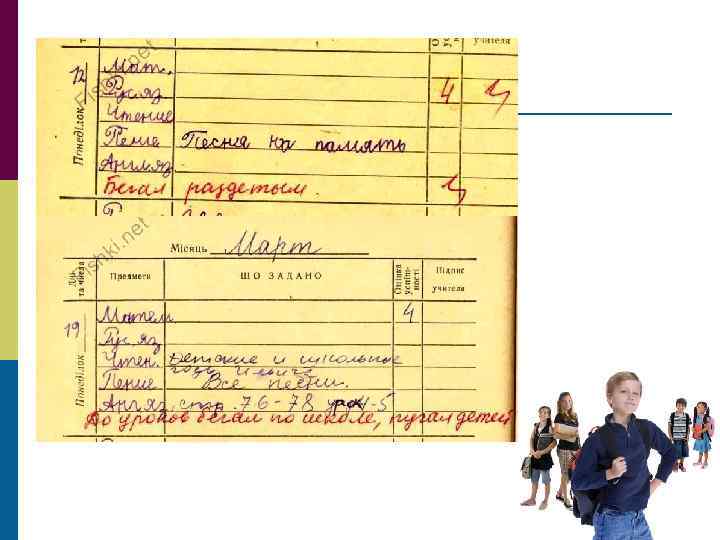 Оцінка
учителя
12 Понеділок
Мат.
Рус яз 4
Чтение
Пение Песня на память
Англ яз
Бегал раздетым.
Fishki.net
Місяць Март
Дні та числа Предмети ЩО ЗАДАНО Оцінка успішності Підпис учителя
19 Понеділок
Матем 4
Рус яз
Чтен. Детские и школьные
годы Ильича
Пение Все песни.
Англ яз. стр. 76-78 урок 4-5
До уроков бегал по школе, пугал детей
Fishki.net